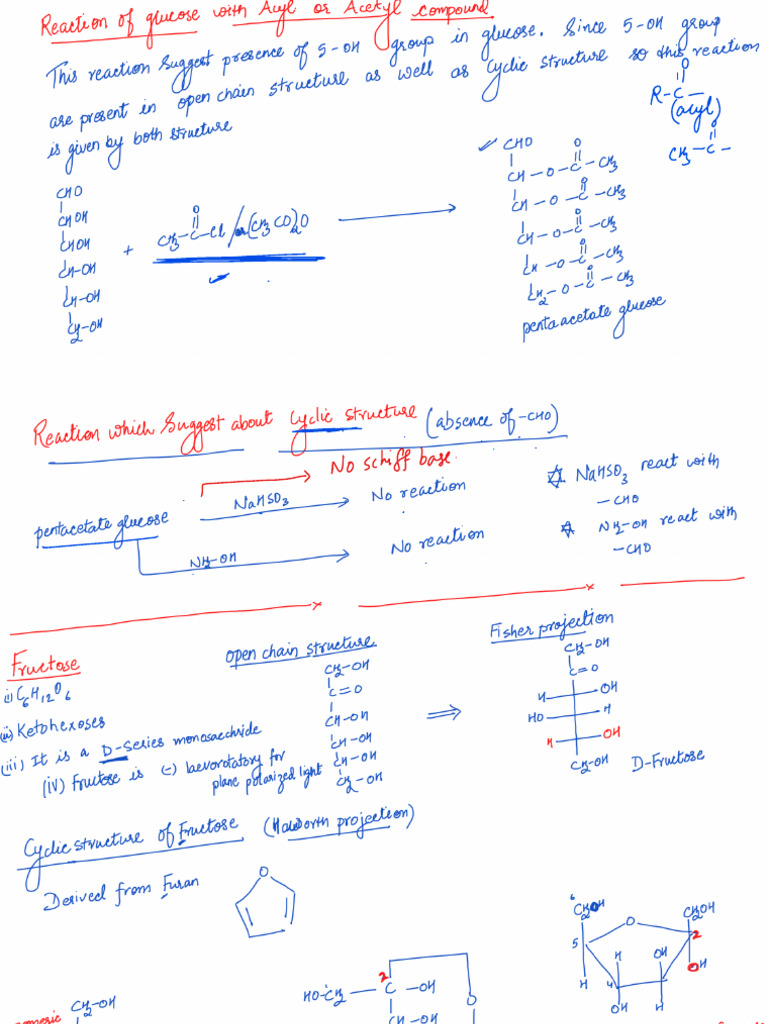 Reaction of glucose with Acyl or Acetyl compound
This reaction suggest presence of 5-OH group in glucose. Since 5-OH group
are present in open chain structure as well as cyclic structure so this reaction
is given by both structure
R-C-
O
(acyl)
O
CH3-C-
CHO
CHOH
CHOH
CH-OH
CH-OH
CH2-OH
+
O
CH3-C-Cl/or(CH3CO)2O
CHO
O
CH-O-C-CH3
O
CH-O-C-CH3
O
CH-O-C-CH3
O
CH-O-C-CH3
O
CH2-O-C-CH3
pentaacetate glucose
Reaction which suggest about cyclic structure (absence of -CHO)
No schiff base
pentacetate glucose
NaHSO3
No reaction
NH2-OH
No reaction
NaHSO3 react with
-CHO
NH2-OH react with
-CHO
Fructose
i) C6H12O6
(ii) Ketohexoses
(iii) It is a D-series monosacchride
(iv) Fructose is (-) laevorotatory for
plane polarized light
Open chain structure
CH2-OH
C=O
CH-OH
CH-OH
CH-OH
CH2-OH
Fisher projection
CH2-OH
C=O
H OH
HO H
H OH
CH2-OH
D-Fructose
Cyclic structure of Fructose (Haworth projection)
Derived from Furan
O
6
CH2OH
O
CH2OH
5
2
H
H
OH
OH
4
OH
H
CH2-OH
2
HO-CH2
C
-OH
O
CH-OH